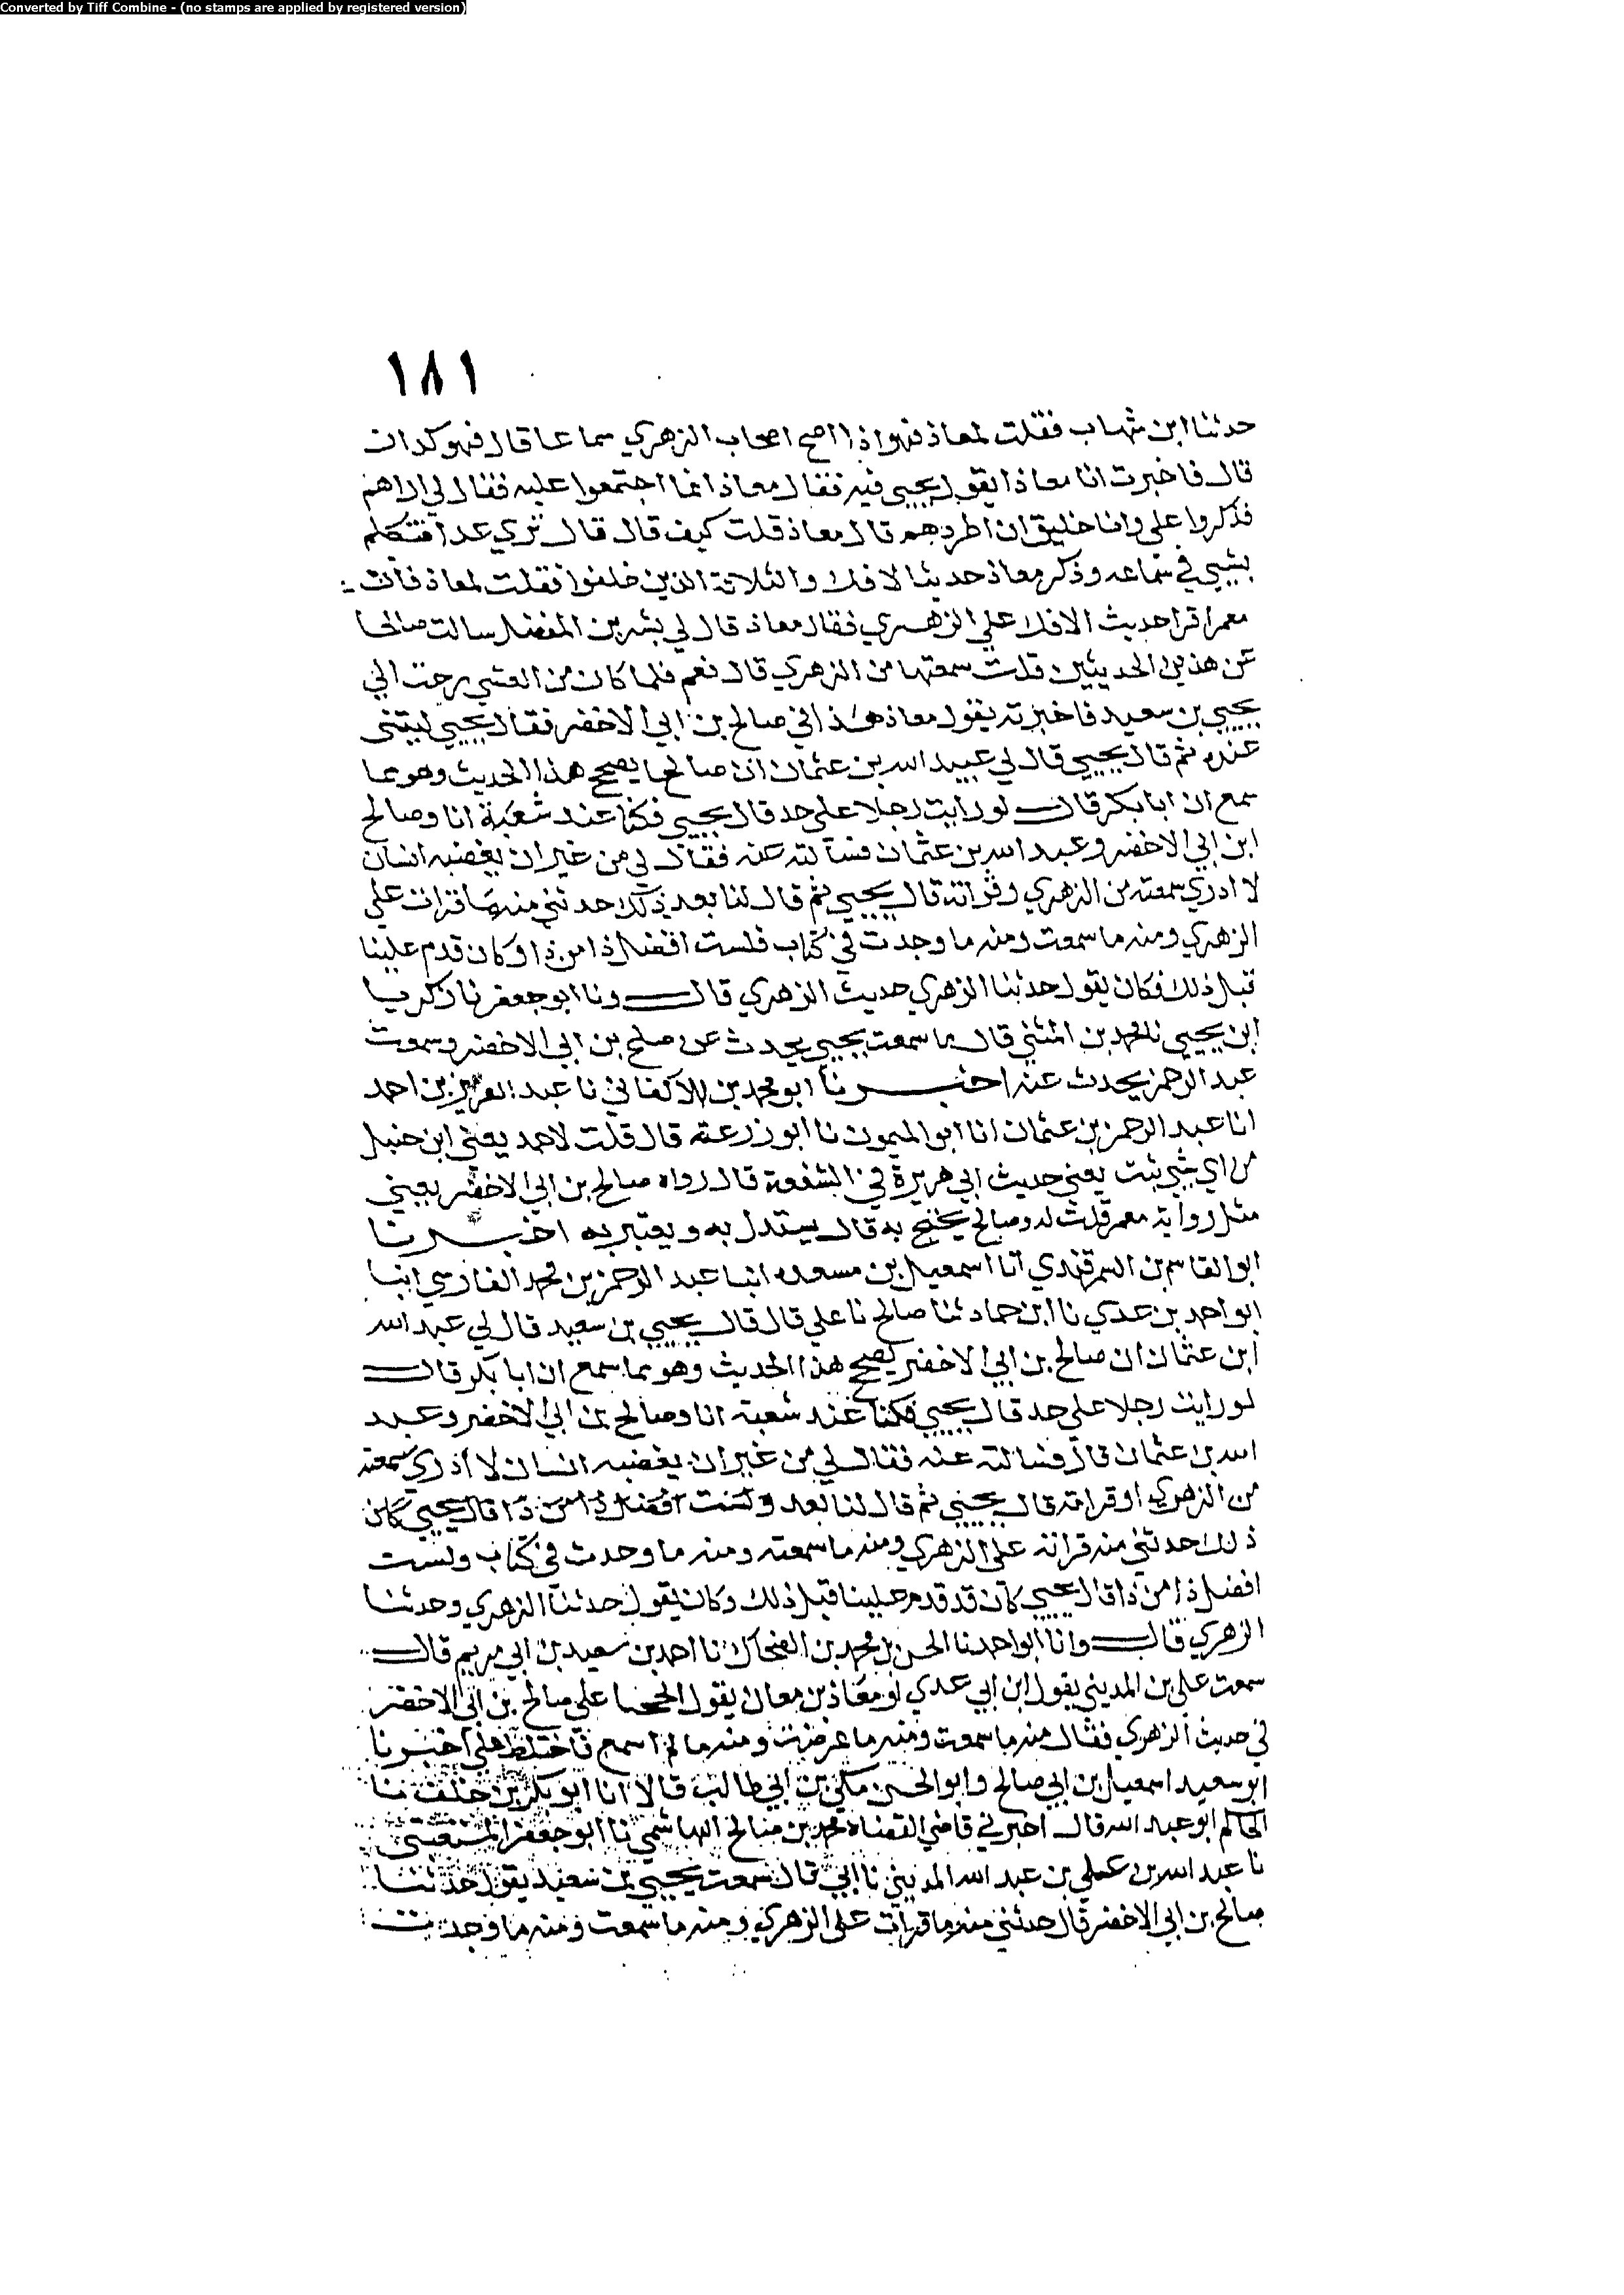 Converted by Tiff Combine - (no stamps are applied by registered version)
١٨١
حدثنا ابن شهاب فقلت لمعاذ فهو اذا اصح اصحاب الزهري سماعا قال فهو كداك
قال فاخبرت انا معاذا بقول يحيى فيه فقال معاذ انما اجتمعوا عليه فقال لي اراهم
فذكروا علي وانا خليق ان اطردهم قال معاذ قلت كيف قال قال ترى عدا افتكلم
بشيى في سماعه وذكر معاذ حديثا لافك والثلاثة الذين خلفوا فقلت لمعاذ فان
معمرا قرا حديث الافك علي الزهري فقال معاذ قال لي بشر بن المفضل سالت صالحا
عن هذين الحديثين قلت سمعتهما من الزهري قال نعم فلما كان من العشي رحت الي
يحيى بن سعيد فاخبرته بقول معاذ هذا في صالح بن ابي الاخضر فقال يحيى ليتني
عنده ثم قال يحيى قال لي عبيد الله بن عثمان ان صالحا يصحح هذا الحديث وهو مما
سمع ان ابا بكر قال لو رايت رجلا على حد قال يحيى فكنا عند شعبة انا وصالح
ابن ابي الاخضر وعبد الله بن عثمان فسالته عنه فقال لي من غير ان يغضبه انسان
لا ادري سمعته من الزهري وقراته قال يحيى ثم قال لنا بعد ذلك حدثني منه ما قرات علي
الزهري ومنه ما سمعت ومنه ما وجدت في كتاب فلست افضل ذا من ذا وكان قدم علينا
قبل ذلك فكان يقول حدثنا الزهري حديث الزهري قال ونا ابو جعفر نا زكريا
ابن يحيى نا محمد بن المثني قال ما سمعت يحيى يحدث عن صلح بن ابي الاخضر وسمعت
عبد الرحمن يحدث عنه اخبرنا ابو محمد بن الاكفاني نا عبد العزيز بن احمد
انا عبد الرحمن بن عثمان انا ابو الميمون نا ابو زرعة قال قلت لاحمد يعني ابن حنبل
من اي شي ثبت يعني حديث ابي هريرة في الشفعة قال رواه صالح بن ابي الاخضر يعني
مثل رواية معمر قلت له وصالح يحتج به قال يستدل به ويعتبر به اخبرنا
ابو القاسم بن السمرقندي انا اسمعيل بن مسعده انبا عبد الرحمن بن محمد الفارسي انبا
ابو احمد بن عدي نا ابن حماد ثنا صالح نا علي قال قال يحيى بن سعيد قال لي عبد الله
ابن عثمان ان صالح بن ابي الاخضر يصحح هذا الحديث وهو مما سمع ان ابا بكر قال
لو رايت رجلا على حد قال يحيى فكنا عند شعبة انا وصالح بن ابي الاخضر وعبد
الله بن عثمان قال فسالته عنه فقال لي من غير ان يغضبه انسان لا ادري سمعته
من الزهري او قراته قال يحيى ثم قال لنا بعد ولست افضل ذا من ذا قال يحيى كان
ذلك حدثني منه قراته على الزهري ومنه ما سمعته ومنه ما وجدت في كتاب ولست
افضل ذا من ذا قال يحيى كان قد قدم علينا قبل ذلك وكان يقول حدثنا الزهري وحدثنا
الزهري قال وانا ابو احمد نا الحسن بن محمد بن الضحاك نا احمد بن سعيد بن ابي مريم قال
سمعت علي بن المديني يقول ابن ابي عدي او معاذ بن معاذ يقول الححنا على صالح بن ابي الاخضر
في حديث الزهري فقال منه ما سمعت ومنه ما عرضت ومنه ما لم اسمع فاختلط علي اخبرنا
ابو سعيد اسمعيل بن ابي صالح وابو الحسن مكي بن ابي طالب قالا انا ابو بكر بن خلف نا
الحاكم ابو عبد الله قال اخبرني قاضي القضاة محمد بن صالح الهاشمي نا ابو جعفر المستعيني
نا عبد الله بن علي بن عبد الله المديني نا ابي قال سمعت يحيى بن سعيد يقول حدثنا
صالح بن ابي الاخضر قال حدثني منه ما قرات على الزهري ومنه ما سمعت ومنه ما وجدت